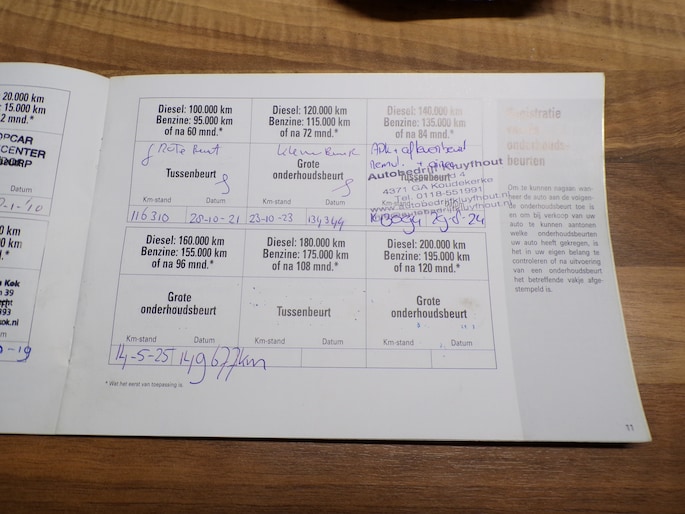 20.000 km
15.000 km
2 mnd.*
CENTER
Diesel: 100.000 km
Benzine: 95.000 km
of na 60 mnd.*
grote Beurt
Tussenbeurt
Km-stand Datum
116310 20-10-21
Diesel: 120.000 km
Benzine: 115.000 km
of na 72 mnd.*
Kleine Beurt
Grote
onderhoudsbeurt
Km-stand Datum
23-10-23 134344
Diesel: 140.000 km
Benzine: 135.000 km
of na 84 mnd.*
Tussenbeurt
Autobedrijf Kruyfhout
4371 GA Koudekerke
Tel. 0118-551991
Diesel: 160.000 km
Benzine: 155.000 km
of na 96 mnd.*
Grote
onderhoudsbeurt
Km-stand Datum
14-5-25 149677km
Diesel: 180.000 km
Benzine: 175.000 km
of na 108 mnd.*
Tussenbeurt
Km-stand Datum
Diesel: 200.000 km
Benzine: 195.000 km
of na 120 mnd.*
Grote
onderhoudsbeurt
Km-stand Datum
* Wat het eerst van toepassing is.
Registratie
onderhouds-
beurten
Om te kunnen nagaan wan-
neer de auto aan de volgen-
de onderhoudsbeurt toe is
en om bij verkoop van uw
auto te kunnen aantonen
welke onderhoudsbeurten
uw auto heeft gekregen, is
het in uw eigen belang te
controleren of na uitvoering
van een onderhoudsbeurt
het betreffende vakje afge-
stempeld is.
11